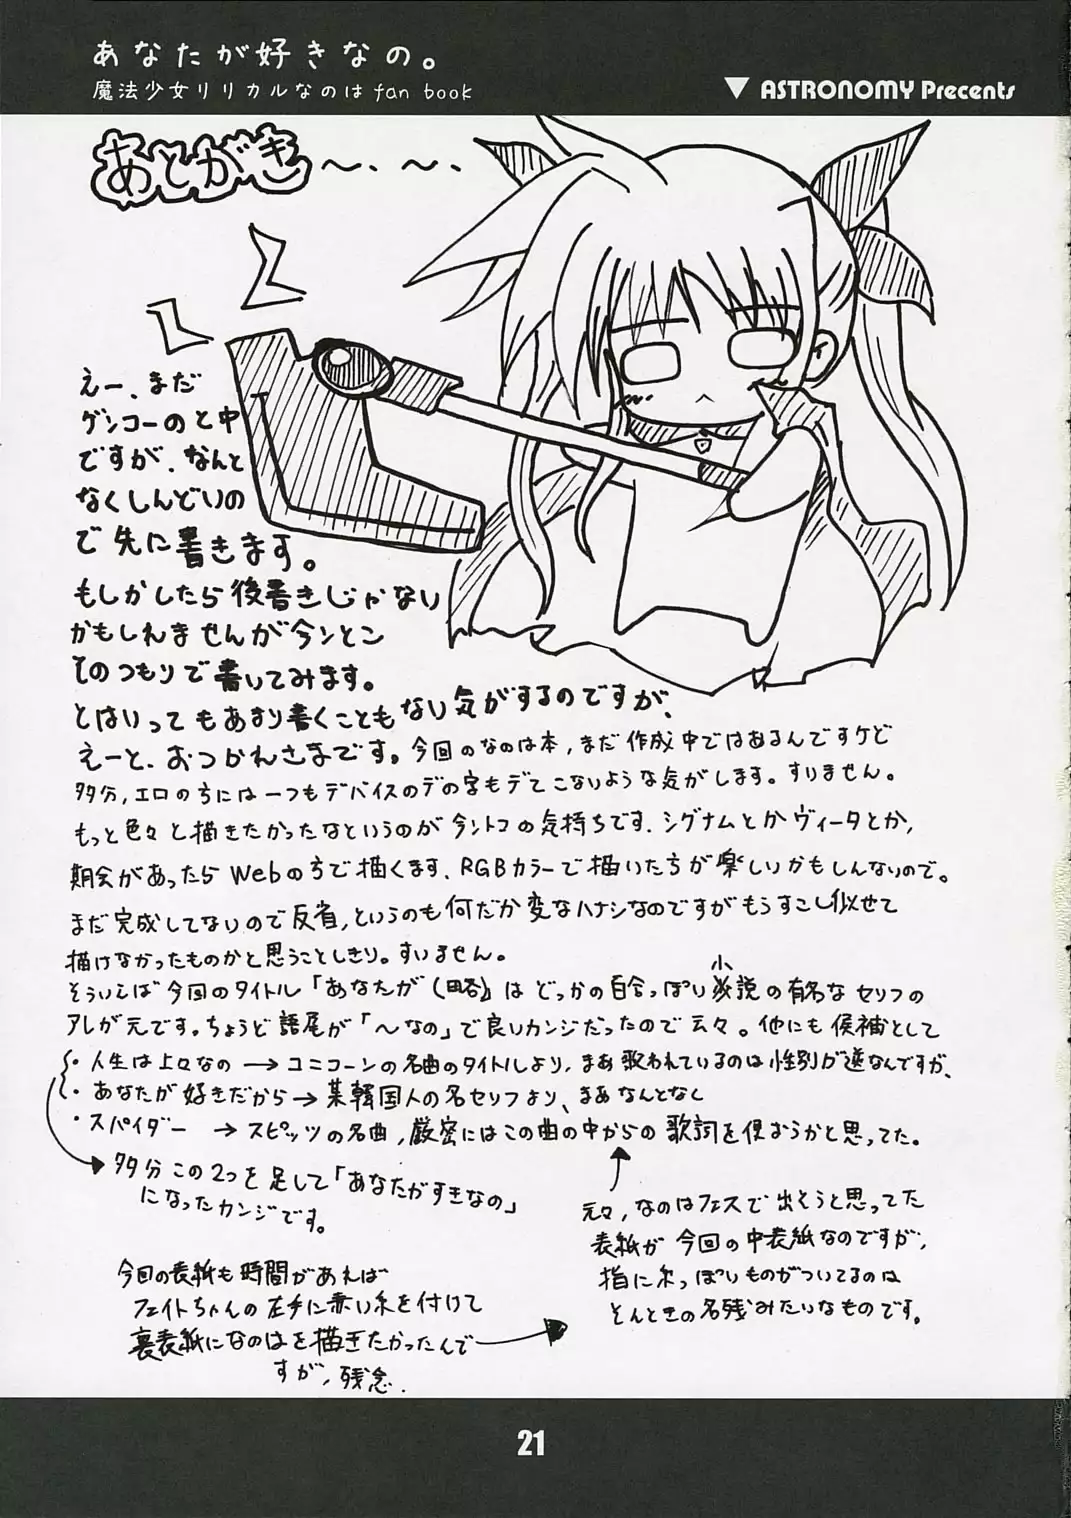 あなたが好きなの。
魔法少女リリカルなのは fan book
▼ ASTRONOMY Precents
あとがき～、～、
えー、まだ
ゲンコーのと中
ですが、なんと
なくしんどいの
で先に書きます。
もしかしたら後書きじゃない
かもしれませんが今ンとこ
そのつもりで書いてみます。
とはいってもあまり書くこともない気がするのですが、
えーと、おつかれさまです。今回のなのは本、まだ作成中ではあるんですケど
多分、エロのちには一つもデバイスのデの字もデてこないような気がします。すいません。
もっと色々と描きたかったなというのが今ントコの気持ちです、シグナムとかヴィータとか、
期会があったらWebのちで描くます、RGBカラーで描いたちが楽しいかもしんないので。
まだ完成してないので反省、というのも何だか変なハナシなのですがもうすこし似せて
描けなかったものかと思うことしきり。すいません。
そういえば今回のタイトル「あなたが(略)」はどっかの百合っぽい小説の有名なセリフの
アレが元です。ちょうど語尾が「～なの」で良いカンジだったので云々。他にも候補として
・人生は上々なの → ユニコーンの名曲のタイトルより、まあ歌われているのは性別が逆なんですが、
・あなたが好きだから → 某韓国人の名セリフより、まあなんとなく
・スパイダー → スピッツの名曲、厳密にはこの曲の中からの歌詞を使おうかと思ってた。
多分この2つを足して「あなたがすきなの」
になったカンジです。
元々、なのはフェスで出そうと思ってた
表紙が今回の中表紙なのですが、
指に糸っぽいものがついてるのは
そんときの名残みたいなものです。
今回の表紙も時間があれば
フェイトちゃんの左手に赤い糸を付けて
裏表紙になのはを描きたかったんで
すが、残念.
21